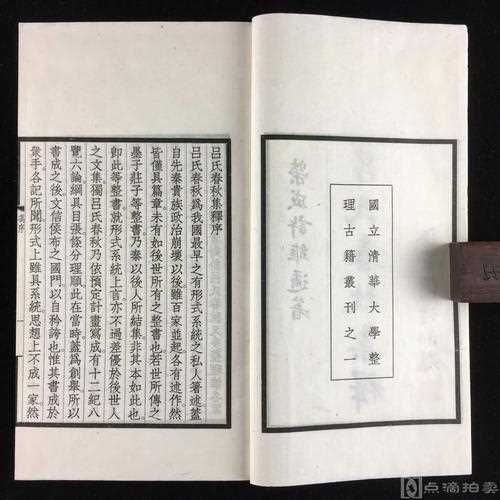 國立清華大學整
理古籍叢刊之一
榮成許維遹著
呂氏春秋集釋序
呂氏春秋為我國最早之有形式系統之私人著述蓋
自先秦貴族政治崩壞以後雖百家並起各有述作然
皆僅具篇章未有如後世所有之整書也若世所傳之
墨子莊子等書乃秦以後人所結集非其本如此也
即此等整書就形式系統上言亦不過差優於後世人
之文集獨呂氏春秋乃依預定計畫寫成有十二紀八
覽六論綱具目張條分理順此在當時蓋為創舉所以
書成之後文信侯布之國門以自矜誇也惟其書成於
衆手各記所聞形式上雖具系統思想上不成一家然
点滴拍卖